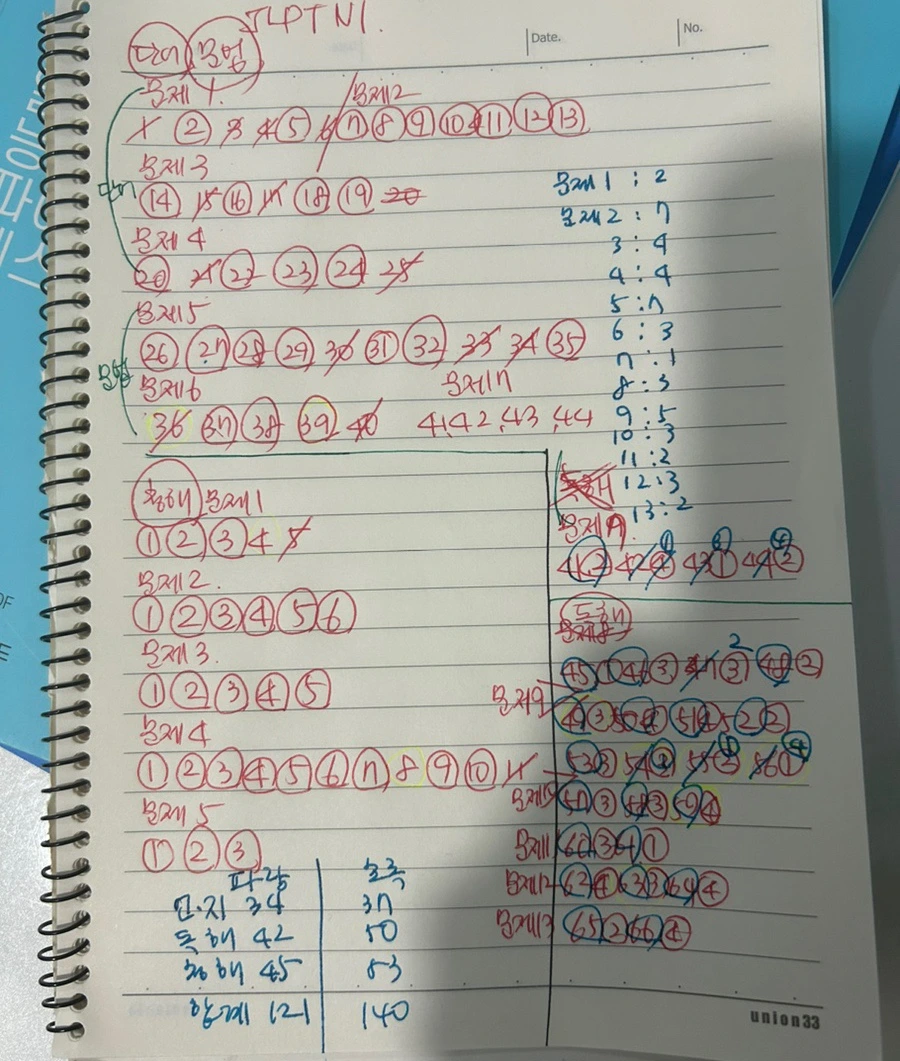 JLPT N1.
단어 문법
Date.
No.
문제 1
문제2
1 ② 3 4 ⑤ 6 ⑦ ⑧ ⑨ ⑩ ⑪ ⑫ ⑬
문제3
단어
⑭ 15 ⑯ 17 ⑱ ⑲ 20
문제 4
⑳ 21 ㉒ ㉓ ㉔ 25
문제5
㉖ ㉗ ㉘ ㉙ 30 ㉛ ㉜ 33 34 ㉟
문법
문제6
문제7
36 ㊲ ㊳ ㊴ 40
41, 42, 43, 44
문제 1 : 2
문제 2 : 7
3 : 4
4 : 4
5 : 7
6 : 3
7 : 1
8 : 3
9 : 5
10 : 3
11 : 2
12 : 3
13 : 2
청해 문제1
① ② ③ 4 5
문제2.
① ② ③ ④ ⑤ ⑥
문제3.
① ② ③ ④ ⑤
문제4
① ② ③ ④ ⑤ ⑥ ⑦ 8 ⑨ ⑩ 11
문제 5
① ② ③
독해
문제7.
독해
문제8
45 46 ③ 47 ③ 2 48 ②
문제9
53 54 55 56
57 ③ 58 ③ 59 ④
문제11
60 ③ 61 ①
문제12
62 ④ 63 64 ④
문제13
65 2 66 ④
파랑
초록
언.지 34
37
독해 42
50
청해 45
53
합계 121
140
union33